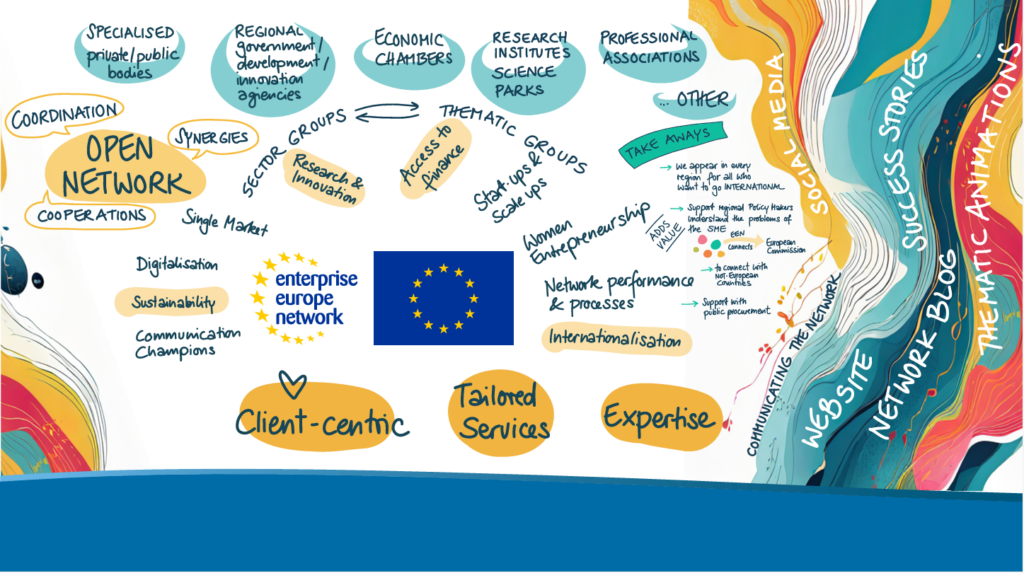 SPECIALISED
private/public
bodies
REGIONAL
government/
development/
innovation
agencies
ECONOMIC
CHAMBERS
RESEARCH
INSTITUTES
SCIENCE
PARKS
PROFESSIONAL
ASSOCIATIONS
... OTHER
COORDINATION
SYNERGIES
OPEN
NETWORK
COOPERATIONS
SECTOR GROUPS
THEMATIC GROUPS
Research &
Innovation
Access to
finance
Start-ups &
Scale ups
Single Market
Women
Entrepreneurship
Digitalisation
Sustainability
Communication
Champions
enterprise
europe
network
Network performance
& processes
Internationalisation
TAKE AWAYS
we appear in every
region for all who
want to go INTERNATIONAL
ADDS
VALUE
Support regional Policy Makers
Understand the problems of
the SME
EEN
connects
European
Commission
to connect with
Not-European
Countries
Support with
public procurement
Client-centric
Tailored
Services
Expertise
COMMUNICATING THE NETWORK
SOCIAL MEDIA
WEBSITE
SUCCESS STORIES
NETWORK BLOG
THEMATIC ANIMATIONS